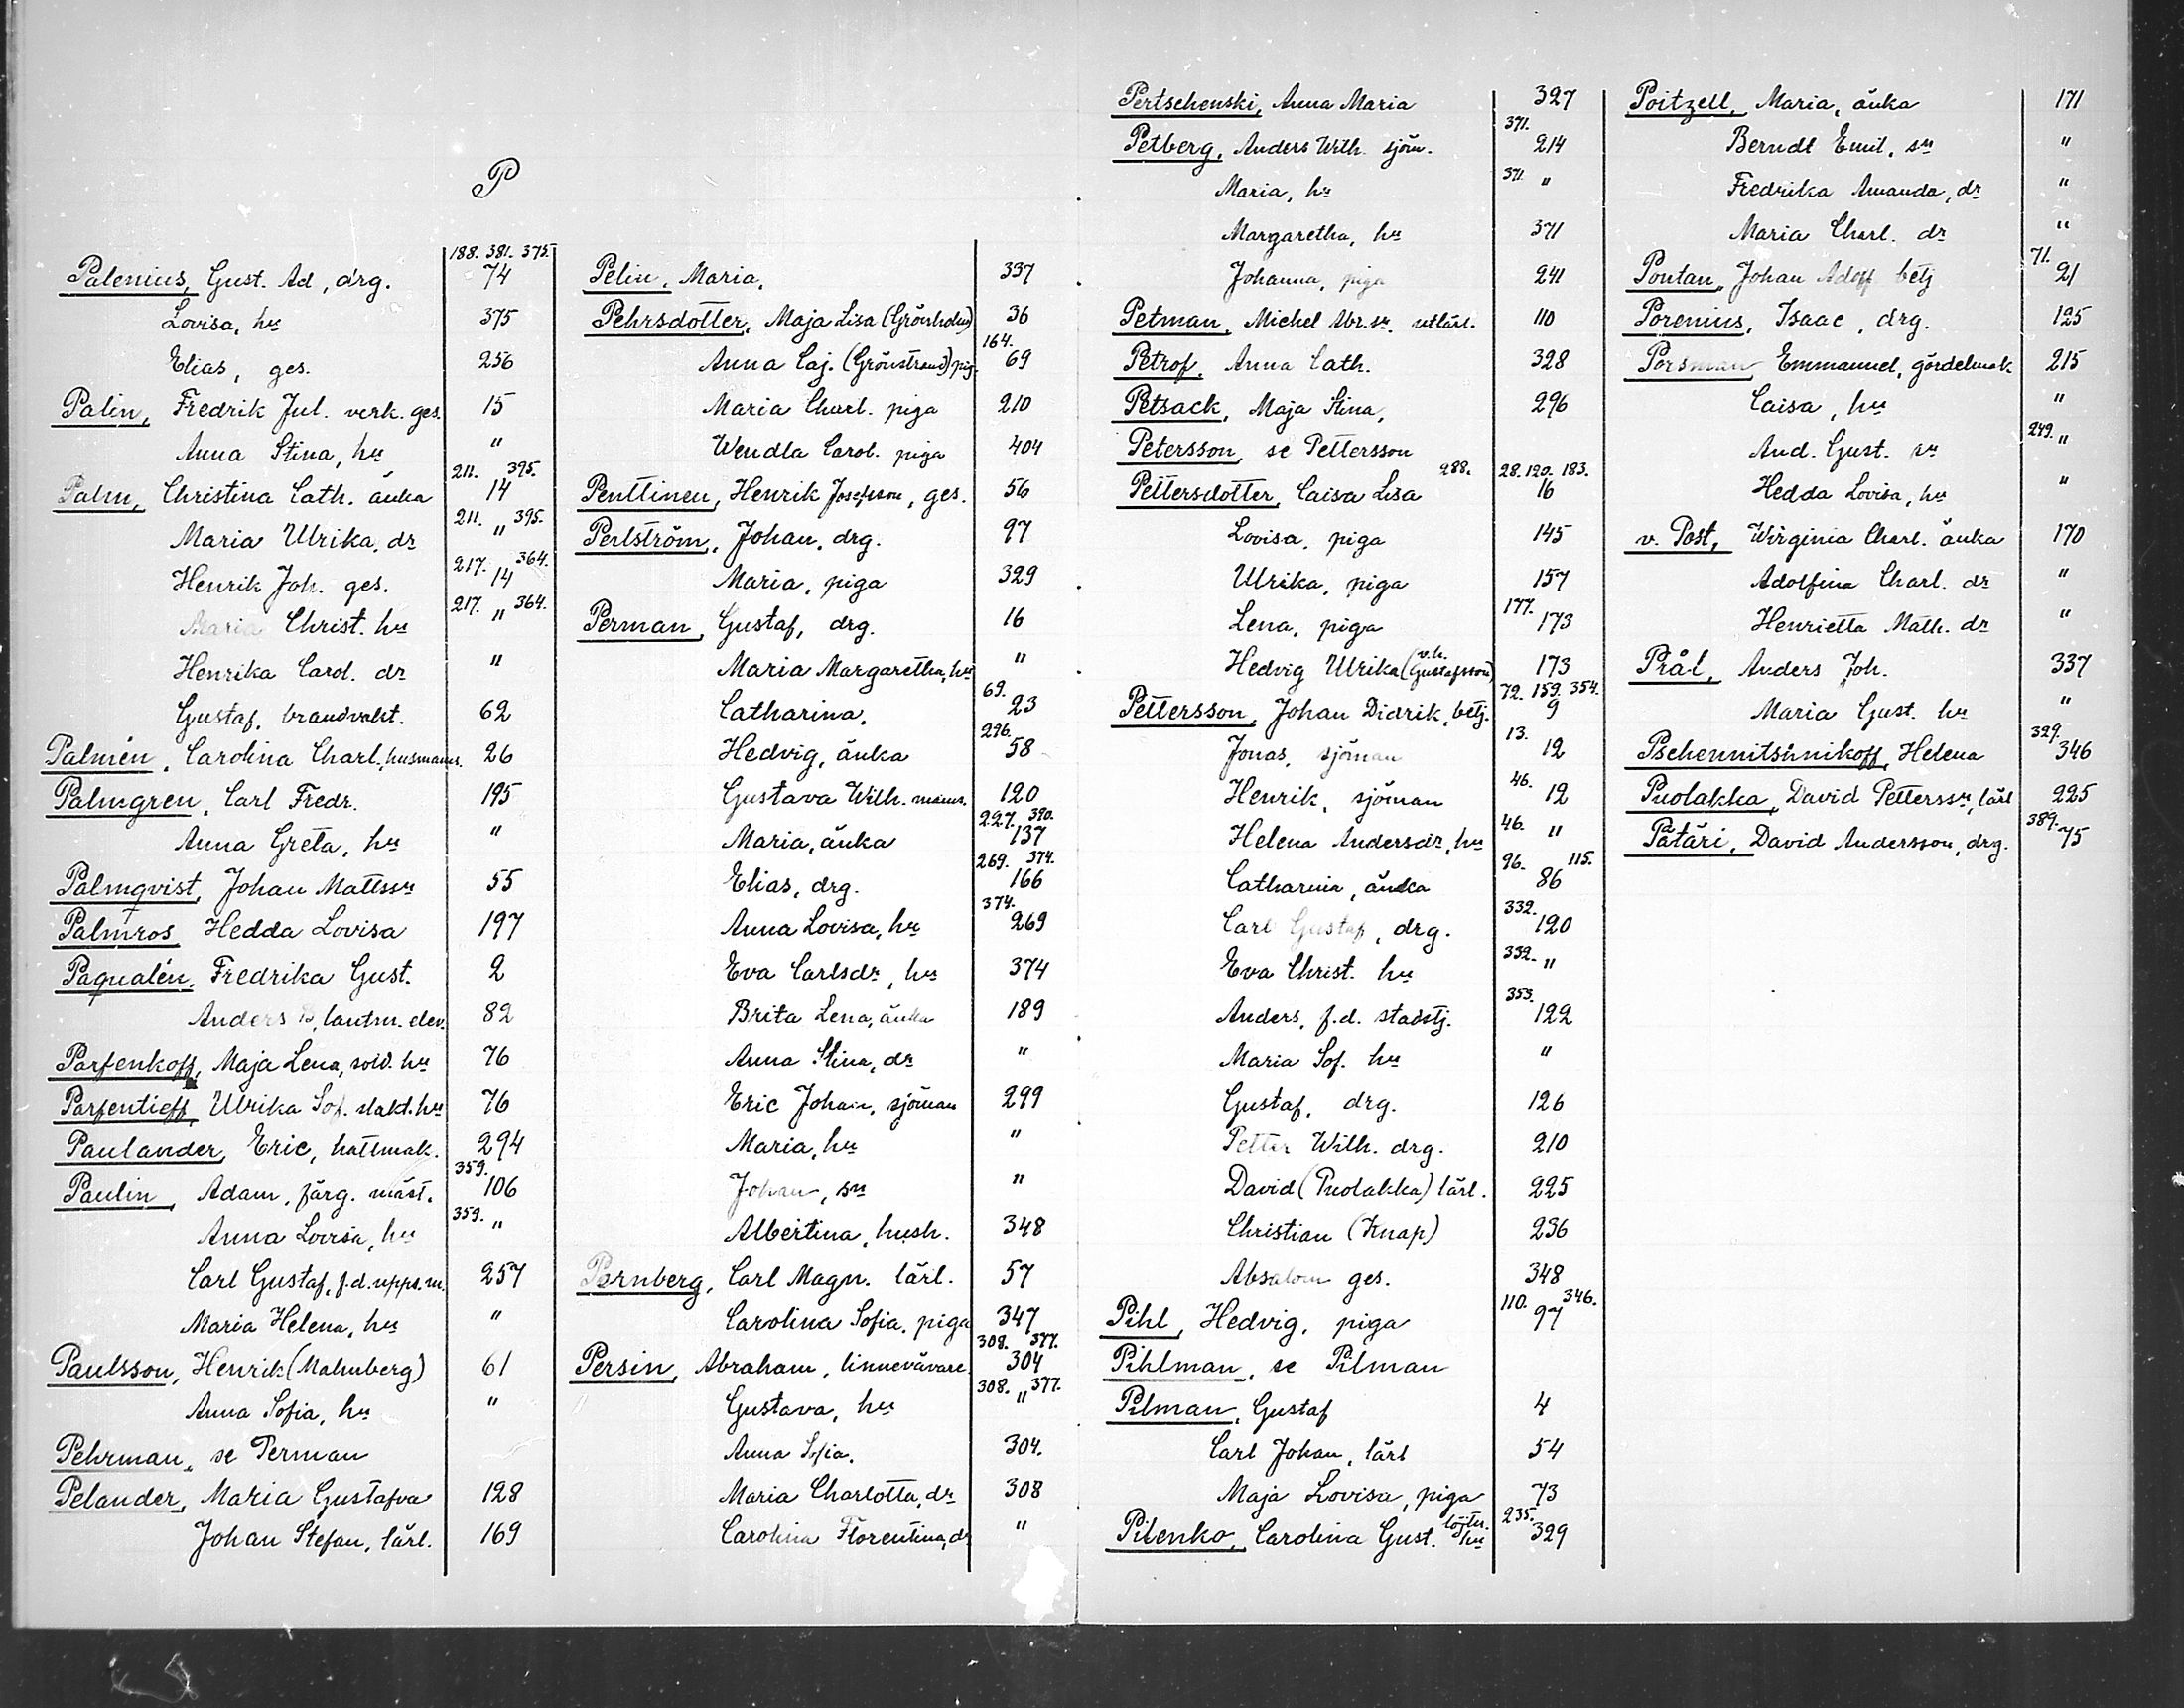 P
188. 381. 375.
Palenius, Gust. Ad, drg. 74
Lovisa, hu 375
Elias, ges. 256
Palin, Fredrik Jul. verk. ges. 15
Anna Stina, hu "
211. 395.
Palm, Christina Cath. änka 14
Maria Ulrika, dr 211. " 395.
Henrik Joh. ges. 217. 14 364.
Maria Christ. hu 217. " 364.
Henrika Carol. dr "
Gustaf, brandvakt. 62
Palmén, Carolina Charl., husmans. 26
Palmgren, Carl Fredr. 195
Anna Greta, hu "
Palmqvist, Johan Mattssn 55
Palmros, Hedda Lovisa 197
Paqualén, Fredrika Gust. 2
Anders B, lantm. elev. 82
Parfenkoff, Maja Lena, sold. hu 76
Parfentieff, Ulrika Sof. slakt. hu 76
Paulander, Eric, hattmak. 294
Paulin, Adam, färg. mäst. 359. 106
Anna Lovisa, hu 359. "
Carl Gustaf, f.d. upps. m. 257
Maria Helena, hu "
Paulsson, Henrik (Malmberg) 61
Anna Sofia, hu "
Pehrman, se Perman
Pelander, Maria Gustafva 128
Johan Stefan, lärl. 169
Pelin, Maria, 337
Pehrsdotter, Maja Lisa (Grönholm) 36
Anna Caj. (Grönstrand) pig. 164. 69
Maria Charl. piga 210
Wendla Carol. piga 404
Penttinen, Henrik Josefsson, ges. 56
Perlström, Johan, drg. 97
Maria, piga 329
Perman, Gustaf, drg. 16
Maria Margaretha, hu "
Catharina, 69. 23
Hedvig, änka 296. 58
Gustava Wilh. mams. 120
Maria, änka 227. 390. 137
Elias, drg. 269. 374. 166
Anna Lovisa, hu 374. 269
Eva Carlsdr, hu 374
Brita Lena, änka 189
Anna Stina, dr "
Eric Johan, sjöman 299
Maria, hu "
Johan, sn "
Albertina, hush. 348
Pernberg, Carl Magn. lärl. 57
Carolina Sofia, piga 347
Persin, Abraham, linnevävare 308. 377. 304
Gustava, hu 308. " 377.
Anna Sofia, 304.
Maria Charlotta, dr 308
Carolina Florentina, dr "
Pertschenski, Anna Maria 327
Petberg, Anders Wilh. sjöm. 371. 214
Maria, hu 371. "
Margaretha, hu 371
Johanna, piga 241
Petman, Michel Abr. sn. utlärl. 110
Petrof, Anna Cath. 328
Petsack, Maja Stina, 296
Petersson, se Pettersson
Pettersdotter, Caisa Lisa 288. 28. 120. 183. 16
Lovisa, piga 145
Ulrika, piga 157
Lena, piga 177. 173
Hedvig Ulrika (v.h. Gustafsson) 173
Pettersson, Johan Didrik, betj. 72. 159. 354. 9
Jonas, sjöman 13. 12
Henrik, sjöman 46. 12
Helena Andersdr, hu 46. "
Catharina, änka 96. 115. 86
Carl Gustaf, drg. 332. 120
Eva Christ. hu 332. "
Anders, f.d. stadstj. 353. 122
Maria Sof. hu "
Gustaf, drg. 126
Petter Wilh. drg. 210
David (Puolakka) lärl. 225
Christian (Knap) 236
Absalom ges. 348
Pihl, Hedvig, piga 110. 346. 97
Pihlman, se Pilman
Pilman, Gustaf 4
Carl Johan, lärl 54
Maja Lovisa, piga 73
Pilenko, Carolina Gust. löjtn. hu 235. 329
Poitzell, Maria, änka 171
Berndt Emil, sn "
Fredrika Amanda, dr "
Maria Charl. dr "
Pontan, Johan Adolf betj 71. 21
Porenius, Isaac, drg. 125
Porsman, Emmanuel, gördelmak 215
Caisa, hu "
And. Gust. sn 249. "
Hedda Lovisa, hu "
v. Post, Wirginia Charl. änka 170
Adolfina Charl. dr "
Henrietta Math. dr "
Prål, Anders Joh. 337
Maria Gust. hu "
Pschennitshnikoff, Helena 329. 346
Puolakka, David Petterssn, lärl 225
Pätäri, David Andersson, drg. 389. 75